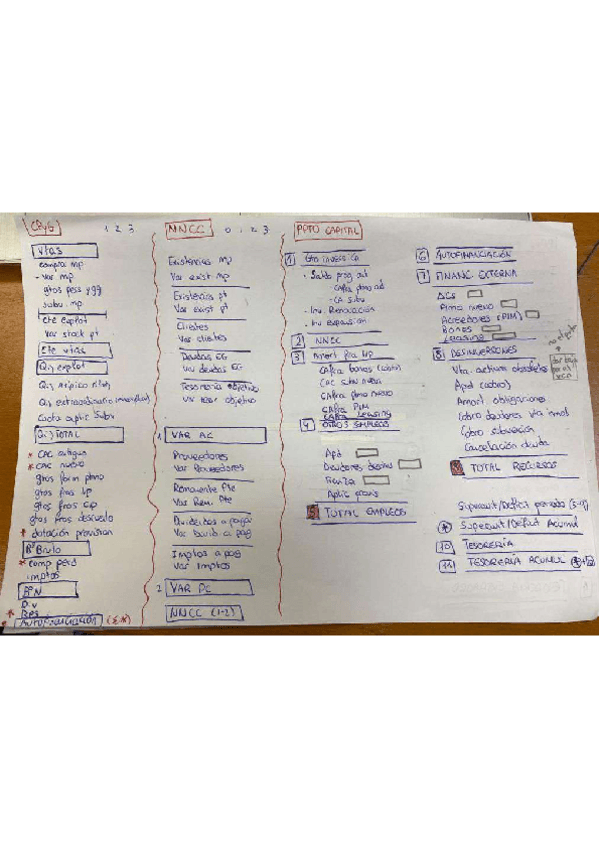 CPyG 1 2 3
Vtas
compra mp
- Var mp
gtos pers y gg
subv. mp
Cte explot
var stock pt
Cte vtas
Qi) explot
Qi) atípico
Qi) extraordinario
Cuota aplic Subv
Qi) TOTAL
* CAC antiguo
* CAC nuevo
gtos form ptmo
gtos fros lp
gtos fros cp
gtos fros descuelo
* dotación provision
Bº Bruto
* comp perd
imptos
BºN
Div
* Bºs
AUTOFINANCIACIÓN (Σ*)
NNCC 0 1 2 3
Existencias mp
Var exist mp
Existencias pt
Var exist pt
Clientes
Var clientes
Deudas
Var deudas
Tesorería objetivo
Var tesor objetivo
1 VAR AC
Proveedores
Var Proveedores
Remanente Pte
Var Rem. Pte
Dividendos a pagar
Var Divid a pag
Imptos a pag
Var Imptos
2 VAR PC
NNCC (1-2)
PPTO CAPITAL
1
- Saldo prog ant
- Inv. Renovación
- Inv expansión
2 NNCC
3 Amort fra lp
CAfra bonos
CAC subv nueva
CAfra ptmo nuevo
CAfra PIM
CAfra Leasing
4 OTROS EMPLEOS
Apd
Deudores
Fianza
Aplic provis
5 TOTAL EMPLEOS
6 AUTOFINANCIACIÓN
7 FINANC. EXTERNA
ΔCS
Ptmo nuevo
Acreedores (PIM)
Bonos
Leasing
8 DESINVERSIONES
Vta. activos obsoletos
Apd (cobro)
Amort obligaciones
Cobro deudores vta inmov
Cobro subvención
Cancelación deuda
9 TOTAL RECURSOS
Superavit/Déficit periodo
* Superavit/Déficit Acumul
10 TESORERÍA
11 TESORERÍA ACUMUL